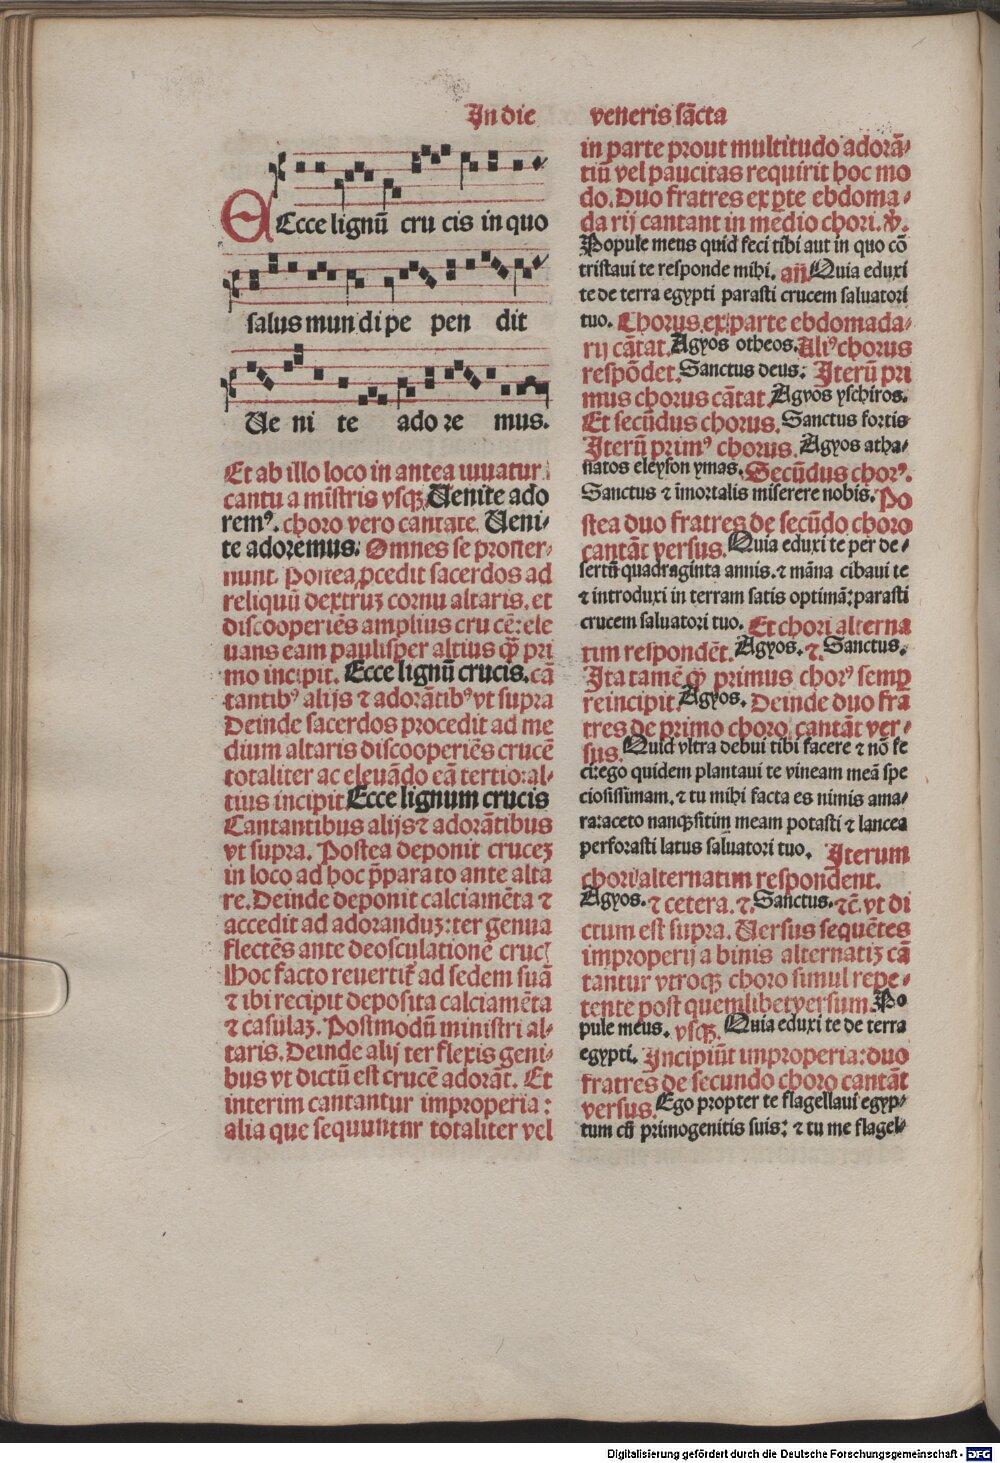 In die veneris sācta
Ecce lignū cru cis in quo
salus mun di pe pen dit
Ue ni te ado re mus.
Et ab illo loco in antea iuuatur
cantu a mīstris vsq̄ Uenite ado
remꝰ. choro vero cantāte. Ueni⸗
te adoremus. Omnes se proster⸗
nunt. Postea ꝓcedit sacerdos ad
reliquū dextruꝫ cornu altaris. et
discooperiēs amplius cru cē: ele
uans eam paulisper altius q̄ꝫ pri
mo incipit. Ecce lignū crucis. cā
tantibꝰ alijs ⁊ adorātibꝰ vt supra
Deinde sacerdos procedit ad me
dium altaris discooperiēs crucē
totaliter ac eleuādo eā tertio: al⸗
tius incipit Ecce lignum crucis
Cantantibus alijs ⁊ adorātibus
vt supra. Postea deponit cruceꝫ
in loco ad hoc p̄para to ante alta
re. Deinde deponit calciamēta ⁊
accedit ad adoranduꝫ: ter genua
flectēs ante deosculationē cruc
Hoc facto reuertit̄ ad sedem suā
⁊ ibi recipit deposita calciamēta
⁊ casulaꝫ. Postmodū ministri al⸗
taris. Deinde alij ter flexis geni⸗
bus vt dictū est crucē adorāt. Et
interim cantantur improperia:
alia que sequuntur totaliter vel
in parte prout multitudo adorā⸗
tiū vel paucitas requirit hoc mo
do. Duo fratres ex ꝑte ebdoma⸗
da rij cantant in mēdio chori. ℣.
Popule meus quid feci tibi aut in quo cō
tristaui te responde mihi. añ. Quia eduxi
te de terra egypti parasti crucem saluatori
tuo. Chorus ex parte ebdomada⸗
rij cātat. Agyos otheos. Aliꝰ chorus
respōdet. Sanctus deus: Iterū pri
mus chorus cātat Agyos yschiros.
Et secūdus chorus. Sanctus fortis
Iterū primꝰ chorus. Agyos atha⸗
natos eleyson ymas. Secūdus chorꝰ.
Sanctus ⁊ īmortalis miserere nobis. Po
stea duo fratres de secūdo choro
cantāt versus. Quia eduxi te per de⸗
sertū quadraginta annis. ⁊ māna cibaui te
⁊ introduxi in terram satis optimā: parasti
crucem saluatori tuo. Et chori alterna
tim respondēt. Agyos. ⁊. Sanctus.
Ita tamē q̄ primus chorꝰ semꝑ
reincipit. Agyos. Deinde duo fra
tres de primo choro cantāt ver⸗
sus. Quid vltra debui tibi facere ⁊ nō fe
ci: ego quidem plantaui te vineam meā spe
ciosissimam. ⁊ tu mihi facta es nimis ama⸗
ra: aceto nanqꝫ sitim meam potasti ⁊ lancea
perforasti latus saluatori tuo. Iterum
chori alternatim respondent.
Agyos. ⁊ cetera. ⁊. Sanctus. ⁊c̄. vt di
ctum est supra. Versus sequētes
improperij a binis alternatiꝫ cā
tantur vtroqꝫ choro simul repe⸗
tente post quemlibet versum Po
pule meus. vsqꝫ. Quia eduxi te de terra
egypti. Incipiūt improperia: duo
fratres de secundo choro cantāt
versus. Ego propter te flagellaui egyp⸗
tum cū primogenitis suis: ⁊ tu me flagel⸗
Digitalisierung gefördert durch die Deutsche Forschungsgemeinschaft - DFG